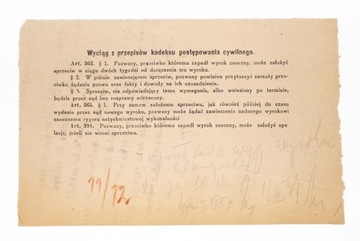 Wyciąg z przepisów kodeksu postępowania cywilnego.
Art. 363. § 1. Pozwany, przeciwko któremu zapadł wyrok zaoczny, może założyć
sprzeciw w ciągu dwóch tygodni od doręczenia mu wyroku.
§ 2. W piśmie zawierającem sprzeciw, pozwany powinien przytoczyć zarzuty prze-
ciwko żądaniu pozwu oraz fakty i dowody na ich uzasadnienie.
§ 3. Sprzeciw, nie odpowiadający temu wymaganiu, albo wniesiony po terminie,
będzie przez sąd bez rozprawy odrzucony.
Art. 365. § 1. Przy samem założeniu sprzeciwu, jak również później do czasu
wydania przez sąd nowego wyroku, pozwany może żądać zawieszenia nadanego wyrokowi
zaocznemu rygoru natychmiastowej wykonalności
Art. 394. Pozwany, przeciwko któremu zapadł wyrok zaoczny, może założyć ape-
lację, jeżeli nie wnosi sprzeciwu.
11/12